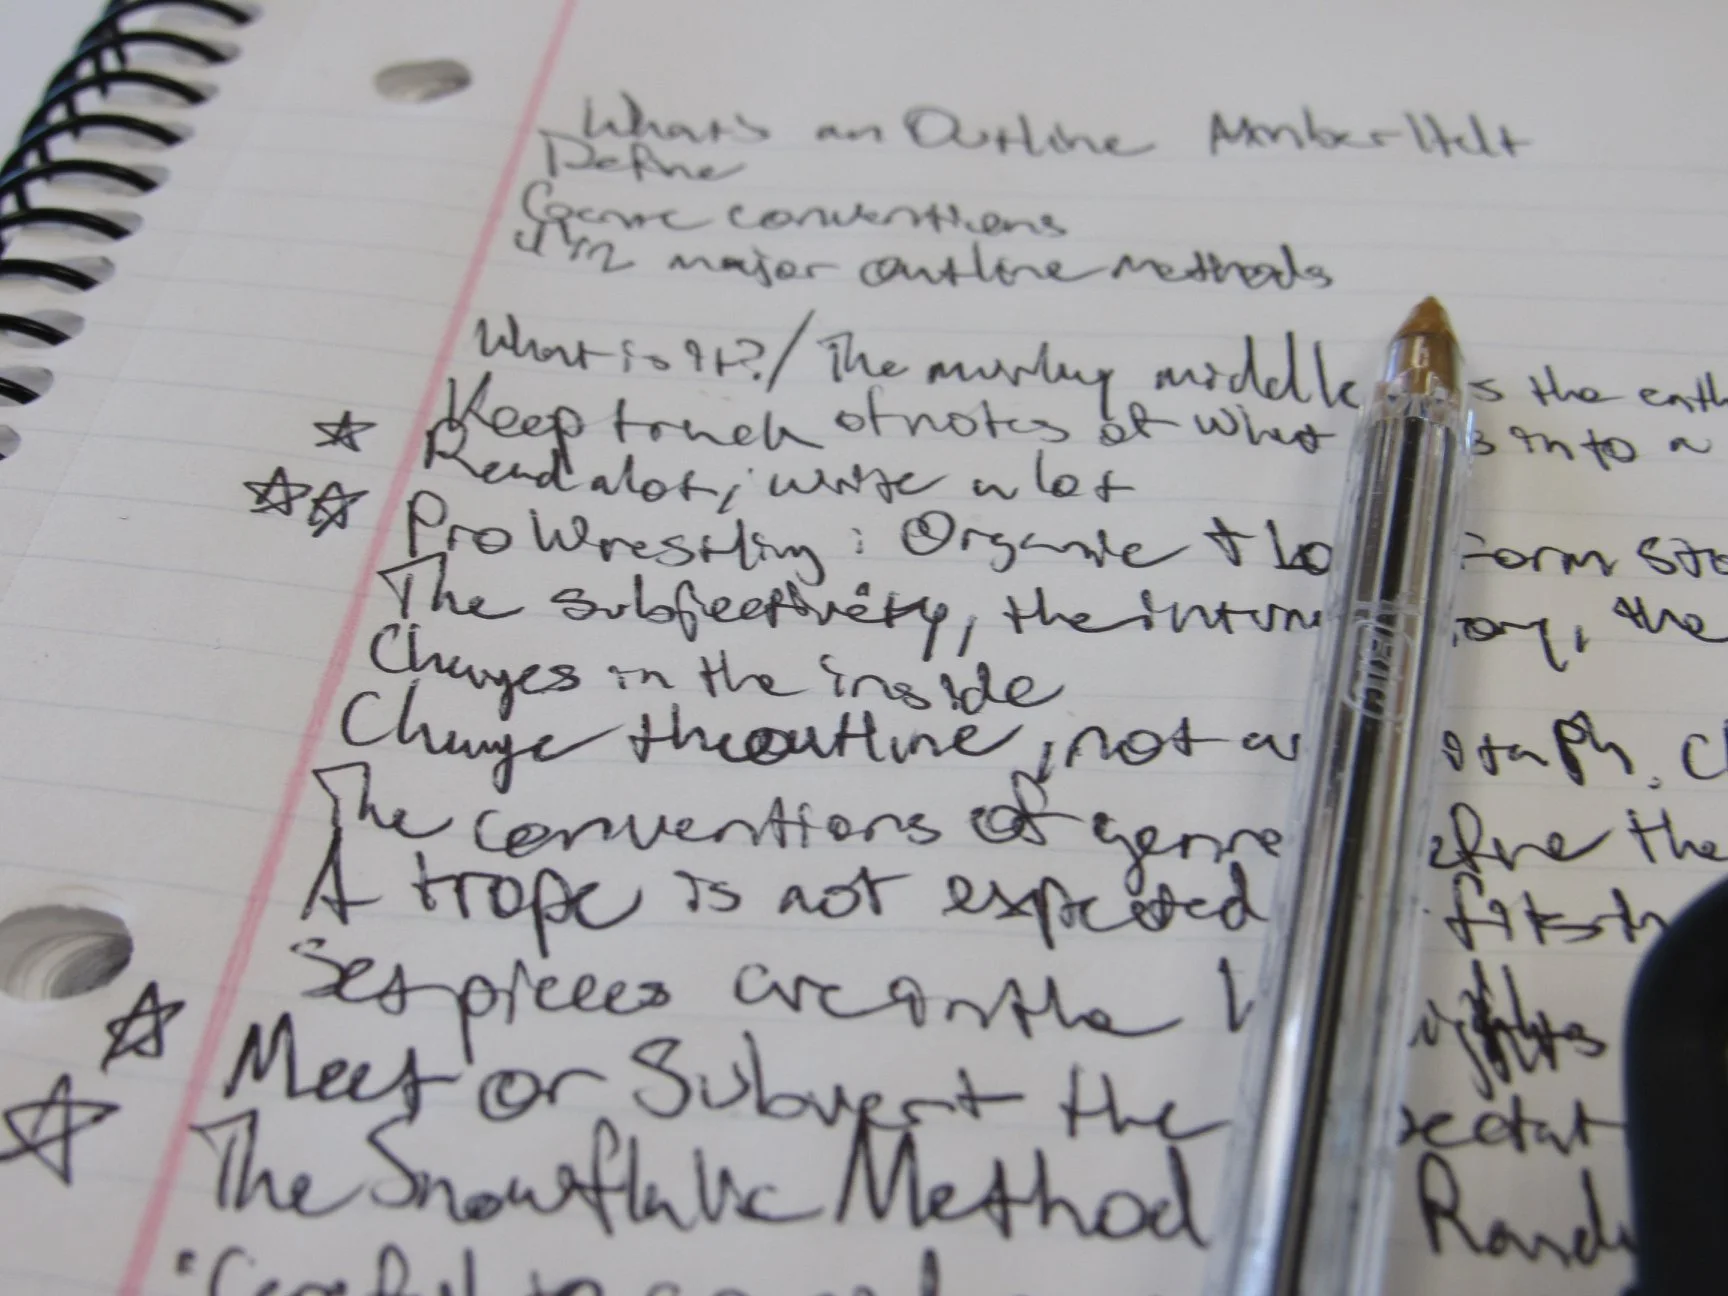 What's an Outline Amber Helt
Define
Genre conventions
major outline methods
What is it? / The murky middle s the
Keep track of notes of what s into a
Read alot, write a lot
Pro Wrestling: Organic + lo form sto
The subjectivety, the intern ory, the
Changes in the inside
Change the outline, not a staph. C
The conventions of genre efine the
A trope is not expected
Set pieces are in the
Meet or Subvert the pectat
The Snowflake Method Rand